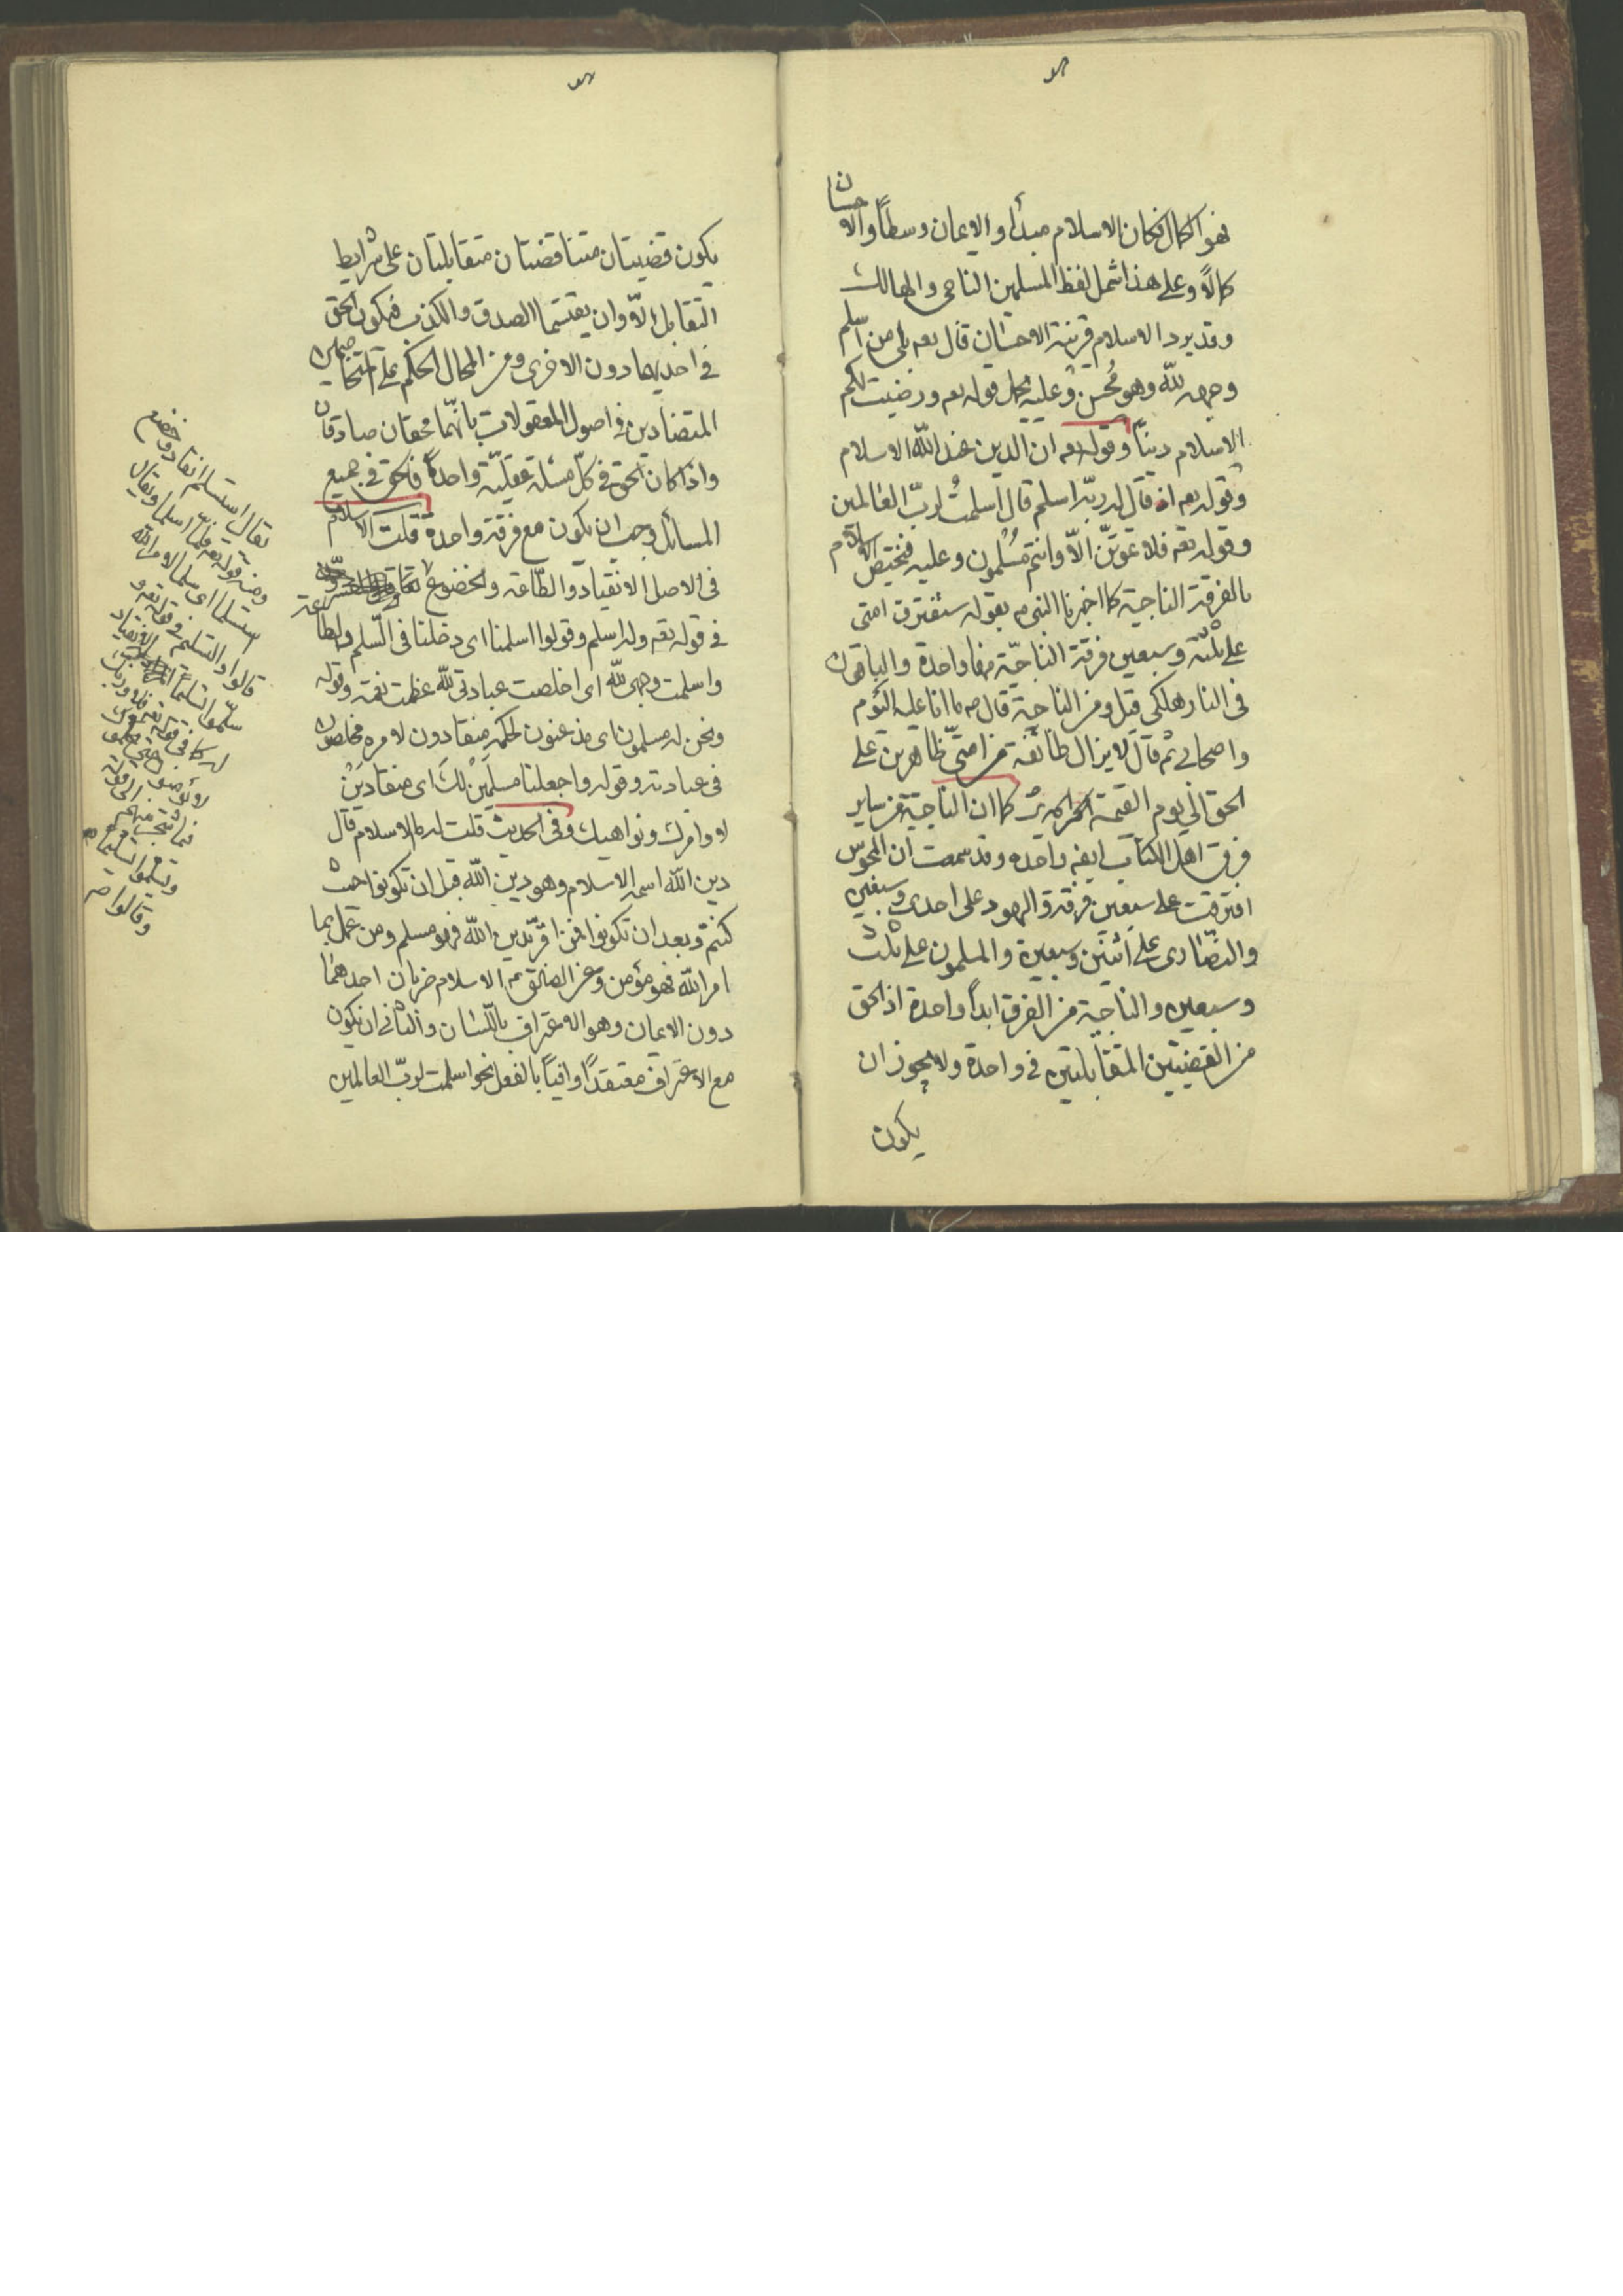 فهو الكمال فكان الاسلام مبدأ والايمان وسطاً والاحسان
كمالاً وعلى هذا شمل لفظ المسلمين الناجى والهالك
وقد يرد الاسلام قرينة الاحسان قال تعه بلى من اسلم
وجهه لله وهو محسن وعليه يحمل قوله تعه ورضيت لكم
الاسلام ديناً وقوله تعه ان الدين عند الله الاسلام
وقوله تعه اذ قال له ربّه اسلم قال اسلمتُ لربّ العالمين
وقوله تعه فلا تموتنّ الاّ وانتم مُسْلمون وعليه فيختصّ الاسلام
بالفرقة الناجية كما اخبرنا النبى ص بقوله ستفترق امتى
على ثلثة وسبعين فرقة الناجيّة منها واحدة والباقون
فى النار هلكى قيل ومن الناجية قال ص ما انا عليه اليَوم
واصحابى ثم قال لا يزال طائفة من امتىّ ظاهرين على
الحق الى يوم القيمة كما ان الناجية من ساير
فرق اهل الكتاب ايضه واحده وقد سمعت ان المجوس
افترقت على سبعين فرقة واليهود على احدى وسبعين
والنصَارى على اثنين وسبعين والمسلمون على ثلث
وسبعين والناجية من الفرق ابداً واحدة اذ الحق
من القضيّتين المتقابلتين فى واحدة ولا يجوز ان
يكون
يكون قضيتان متناقضتان متقابلتان على شرايط
التقابل الاّ وان يقتسما الصدق والكذب فيكون الحق
فى احديهما دون الاخرى ومن المحال الحكم على المتخاصمين
المتضادين فى اصول المعقولات بانّهما محقان صادقان
واذا كان الحق فى كلّ مسئلة عقليّة واحداً فالحق فى جميع
المسائل وجب ان يكون مع فرقة واحدة قلت الاسلام
فى الاصل الانقياد والطّاعة والخضوع
فى قوله تعه وله اسلم وقولوا اسلمنا اى دخلنا فى السّلم والطاعة
واسلمت وجهى لله اى اخلصت عبادتى لله عظمت نعمته وقوله
ونحن له مسلمون اى مذعنون لحكمه منقادون لامره مخلصون
فى عبادته وقوله واجعلنا مسلمَيْن لكَ اى منقادَيْن
لاوامرك ونواهيك وفى الحديث قلت له ما الاسلام قال
دين الله اسمه الاسلام وهو دين الله قبل ان تكونوا حيث
كنتم وبعد ان تكونوا فمن اقرّ بدين الله فهو مسلم ومن عمل بما
امر الله فهو مؤمن وعن الصادق ع الاسلام ضربان احدهمَا
دون الايمان وهو الاعتراف باللّسان والثانى ان يكون
مع الاعتراف معتقداً وافياً بالفعل نحو اسلمت لربّ العالمين
يقال استسلم انقاد وخضع
ومنه قوله تعه فلما اسلما ويقال
استسلما اى سلما لامر الله
قالوا والتسليم فى قوله تعه و
سلّموا تسليماً الانقياد
له كما فى قوله تعه فلا وربك
لا يؤمنون حتى يحكموك
فيما شجر بينهم الى قوله
ويسلّموا تسليما
وقالوا